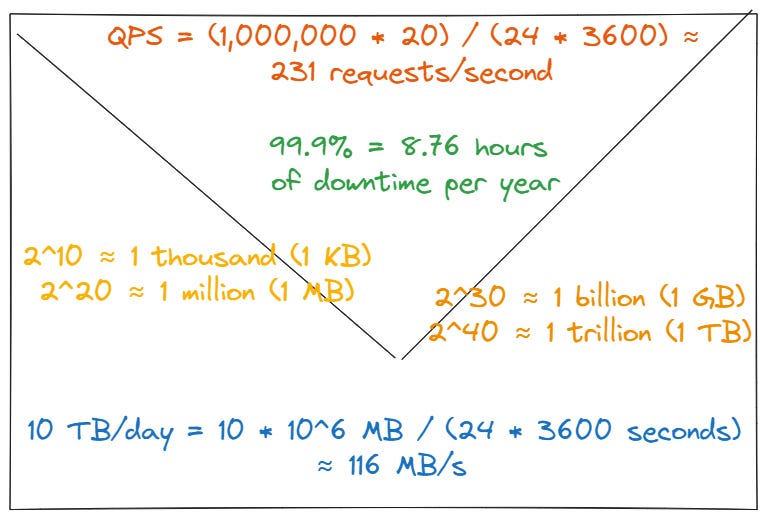 QPS = (1,000,000 * 20) / (24 * 3600) ≈
231 requests/second
99.9% = 8.76 hours
of downtime per year
2^10 ≈ 1 thousand (1 KB)
2^20 ≈ 1 million (1 MB)
2^30 ≈ 1 billion (1 GB)
2^40 ≈ 1 trillion (1 TB)
10 TB/day = 10 * 10^6 MB / (24 * 3600 seconds)
≈ 116 MB/s